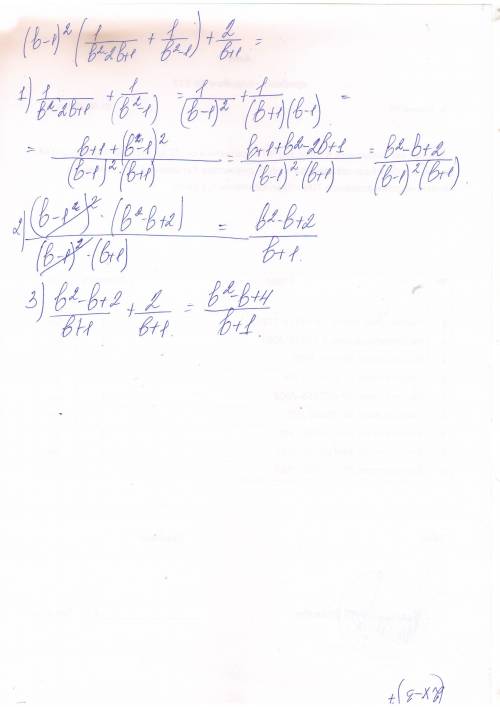 (b-1)² (1/(b²-2b+1) + 1/(b²-1)) + 2/(b+1) =
1) 1/(b²-2b+1) + 1/(b²-1) = 1/(b-1)² + 1/((b+1)(b-1)) =
= (b+1+(b²-1)²)/((b-1)²·(b+1)) = (b+1+b²-2b+1)/((b-1)²·(b+1)) = (b²-b+2)/((b-1)²(b+1)).
2) ((b-1²)²·(b²-b+2))/((b-1)²·(b+1)) = (b²-b+2)/(b+1).
3) (b²-b+2)/(b+1) + 2/(b+1) = (b²-b+4)/(b+1).